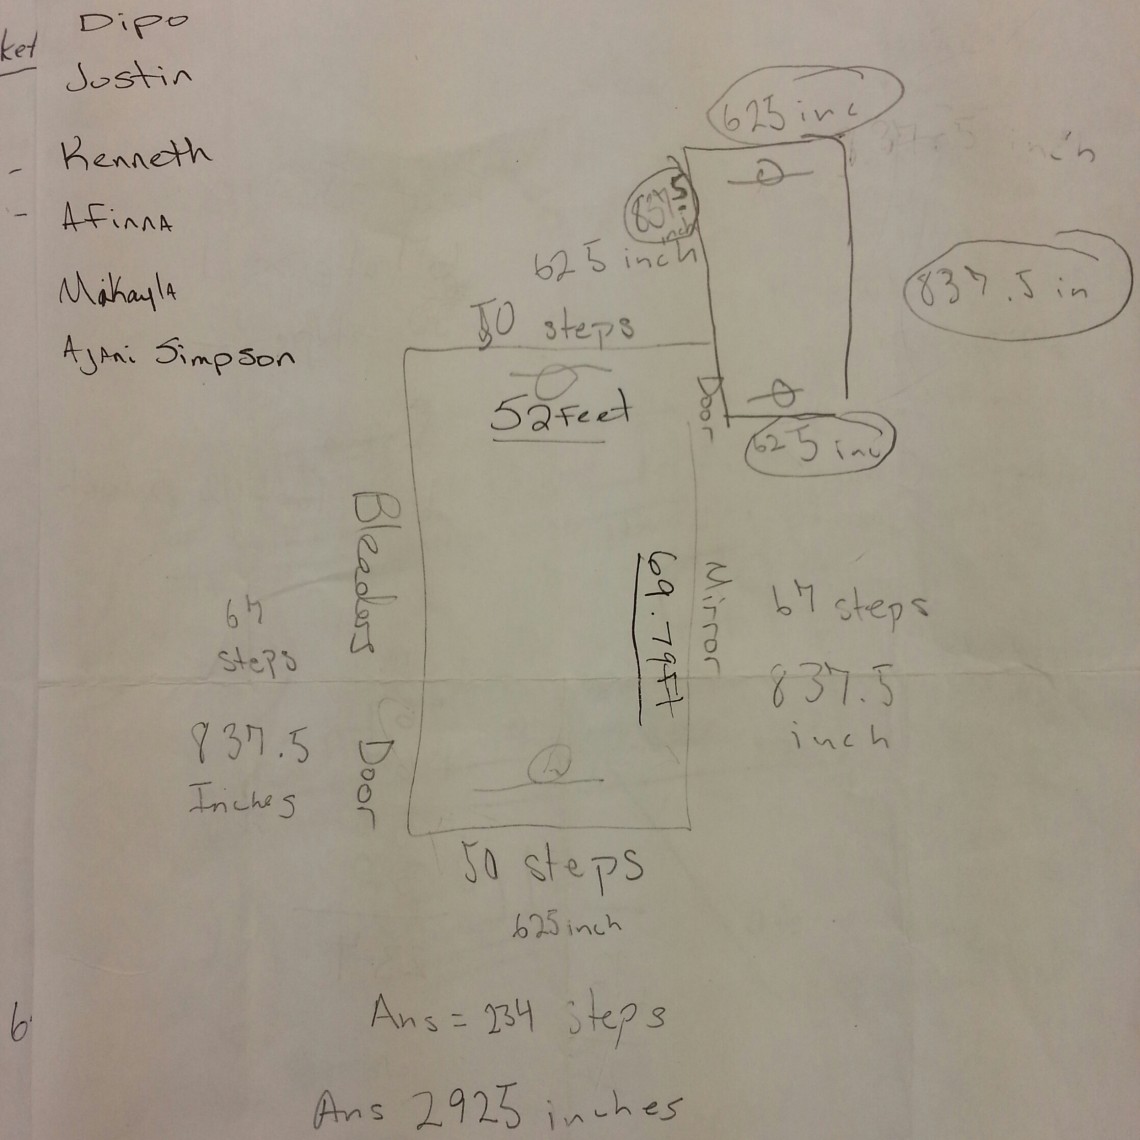 ket
Dipo
Justin
Kenneth
Afinna
Mikayla
Ajani Simpson
625 inc
837.5 inch
837.5
inch
625 inch
837.5 in
50 steps
52 Feet
Door
625 inc
Bleaders
69.79Ft
Mirror
67 steps
67
steps
837.5
inch
837.5
Inches
Door
50 steps
625 inch
Ans = 234 steps
6
Ans 2925 inches